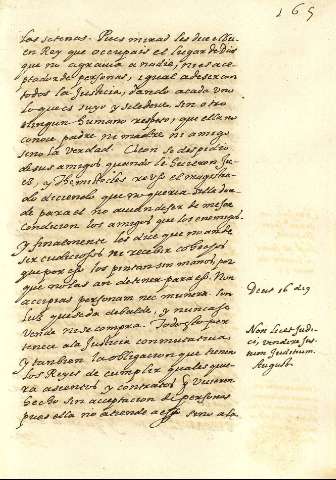 165
las setenas. Pues mirad les dice el bu
en Rey que ocupais el lugar de dios
que no agravia a nadie, ni es acep
tador de personas, igual a de ser con
todos la Justicia, dando a cada uno
lo que es suyo y se le deve, sin otro
ningun humano respeto, que ella no
conoce padre ni madre ni amigo
sino la verdad. Ciceron se despidio
de sus amigos quando le hicieron Ju
ez, y Themistocles el magistra
do diciendo que no queria silla don
de para el no auian de ser de mejor
condicion los amigos que los enemigos
Y finalmente les dice que no an de
ser cudiciosos ni recebir cohechos
que por eso los pintan sin manos, por
que no las an de tener para eso. Non
accipias personam nec munera. Su
luz que se da debalde, y nunca se
vende ni se compra. Todo esto per
tenece a la Justicia commutativa,
y tanbien la obligacion que tienen
los Reyes de cumplir quales quie
ra asientos y contratos que vvieren
hecho sin aceptacion de personas
pues ella no atiende a eso sino a la
Deut 16 d 19
Non licet Judi
ci, vendere Jus
tum Juditium.
August.